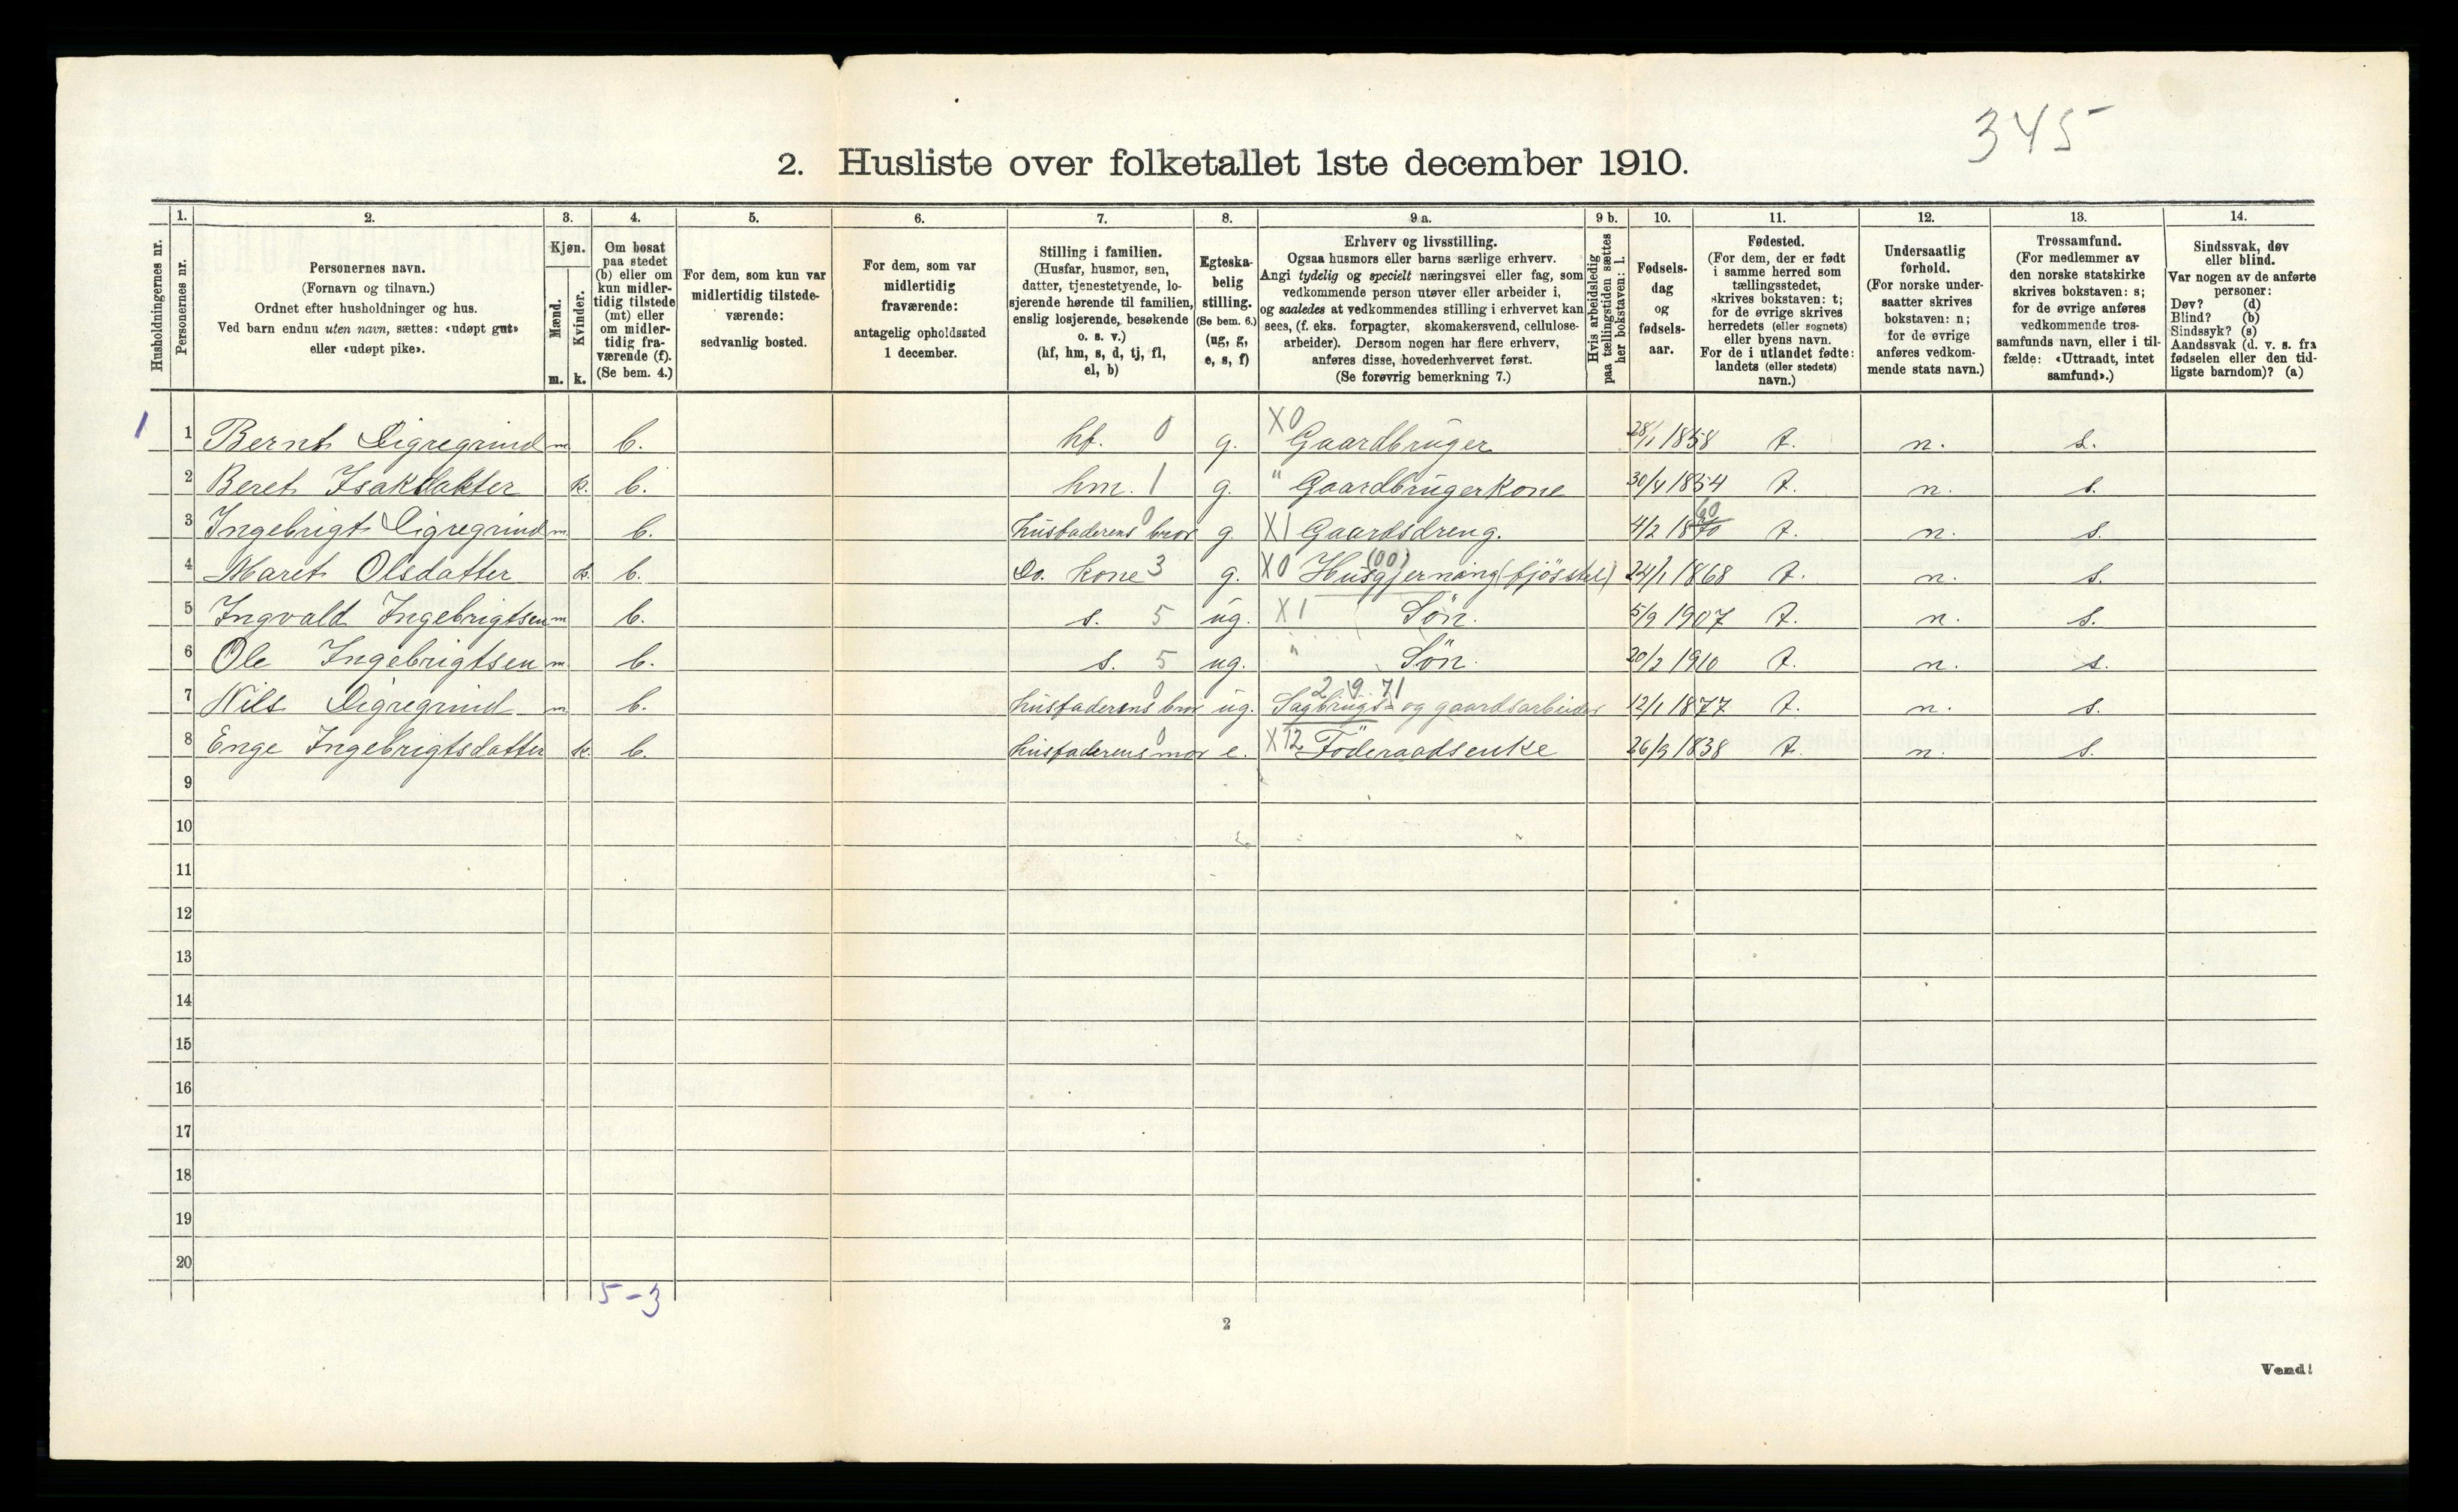 345
2. Husliste over folketallet 1ste december 1910.
Husholdningernes nr.
1.
Personernes nr.
2.
Personernes navn.
(Fornavn og tilnavn.)
Ordnet efter husholdninger og hus.
Ved barn endnu uten navn, sættes: «udøpt gut»
eller «udøpt pike».
3.
Kjøn.
Mænd.
m.
Kvinder.
k.
4.
Om bosat
paa stedet
(b) eller om
kun midler-
tidig tilstede
(mt) eller
om midler-
tidig fra-
værende (f).
(Se bem. 4.)
5.
For dem, som kun var
midlertidig tilstede-
værende:
sedvanlig bosted.
6.
For dem, som var
midlertidig
fraværende:
antagelig opholdssted
1 december.
7.
Stilling i familien.
(Husfar, husmor, søn,
datter, tjenestetyende, lo-
sjerende hørende til familien,
enslig losjerende, besøkende
o. s. v.)
(hf, hm, s, d, tj, fl,
el, b)
8.
Egteska-
belig
stilling.
(Se bem. 6.)
(ug, g,
e, s, f)
9 a.
Erhverv og livsstilling.
Ogsaa husmors eller barns særlige erhverv.
Angi tydelig og specielt næringsvei eller fag, som
vedkommende person utøver eller arbeider i,
og saaledes at vedkommendes stilling i erhvervet kan
sees, (f. eks. forpagter, skomakersvend, cellulose-
arbeider). Dersom nogen har flere erhverv,
anføres disse, hovederhvervet først.
(Se forøvrig bemerkning 7.)
9 b.
Hvis arbeidsledig
paa tællingstiden sættes
her bokstaven: l.
10.
Fødsels-
dag
og
fødsels-
aar.
11.
Fødested.
(For dem, der er født
i samme herred som
tællingsstedet,
skrives bokstaven: t;
for de øvrige skrives
herredets (eller sognets)
eller byens navn.
For de i utlandet fødte:
landets (eller stedets)
navn.)
12.
Undersaatlig
forhold.
(For norske under-
saatter skrives
bokstaven: n;
for de øvrige
anføres vedkom-
mende stats navn.)
13.
Trossamfund.
(For medlemmer av
den norske statskirke
skrives bokstaven: s;
for de øvrige anføres
vedkommende tros-
samfunds navn, eller i til-
fælde: «Uttraadt, intet
samfund».)
14.
Sindssvak, døv
eller blind.
Var nogen av de anførte
personer:
Døv? (d)
Blind? (b)
Sindssyk? (s)
Aandssvak (d. v. s. fra
fødselen eller den tid-
ligste barndom)? (a)
1 1 Bernt Digregrind m b. hf. 0 g. X0 Gaardbruger 28/1 1858 t. n. s.
2 Beret Isaksdatter k. b. hm. 1 g. " Gaardbrugerkone 30/4 1854 t. n. s.
3 Ingebrigt Digregrind m b. husfaderens bror 0 g. X1 Gaardsdreng. 4/2 1870 60 t. n. s.
4 Maret Olsdatter k. b. Do. kone 3 g. X0 (00) Husgjerning (fjösstel) 24/1 1868 t. n. s.
5 Ingvald Ingebrigtsen m b. s. 5 ug. X1 Sön. 5/9 1907 t. n. s.
6 Ole Ingebrigtsen m b. s. 5 ug. " Sön. 20/2 1910 t. n. s.
7 Nils Digregrind m b. husfaderens bror 0 ug. 2 9 71 Sagbrugs- og gaardsarbeider 12/1 1877 t. n. s.
8 Enge Ingebrigtsdatter k. b. husfaderens mor 0 e. X12 Föderaadsenke 26/9 1838 t. n. s.
9
10
11
12
13
14
15
16
17
18
19
20
5-3
2
Vend!